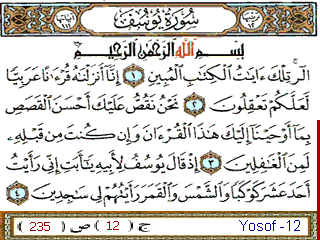 سُورَةُ يُوسُفَ
بِسْمِ اللَّهِ الرَّحْمَٰنِ الرَّحِيمِ
الٓر تِلْكَ ءَايَٰتُ ٱلْكِتَٰبِ ٱلْمُبِينِ ١ إِنَّآ أَنزَلْنَٰهُ قُرْءَٰنًا عَرَبِيًّا
لَّعَلَّكُمْ تَعْقِلُونَ ٢ نَحْنُ نَقُصُّ عَلَيْكَ أَحْسَنَ ٱلْقَصَصِ
بِمَآ أَوْحَيْنَآ إِلَيْكَ هَٰذَا ٱلْقُرْءَانَ وَإِن كُنتَ مِن قَبْلِهِۦ
لَمِنَ ٱلْغَٰفِلِينَ ٣ إِذْ قَالَ يُوسُفُ لِأَبِيهِ يَٰٓأَبَتِ إِنِّى رَأَيْتُ
أَحَدَ عَشَرَ كَوْكَبًا وَٱلشَّمْسَ وَٱلْقَمَرَ رَأَيْتُهُمْ لِى سَٰجِدِينَ ٤
( 235 ) ص ( 12 ) ج Yosof -12